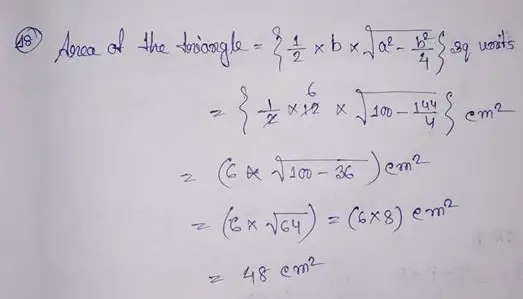 18) Area of the triangle = {1/2 × b × √(a² - b²/4)} sq units
= {1/2 × 12 6 × √(100 - 144/4)} cm²
= (6 × √(100 - 36)) cm²
= (6 × √64) = (6×8) cm²
= 48 cm²